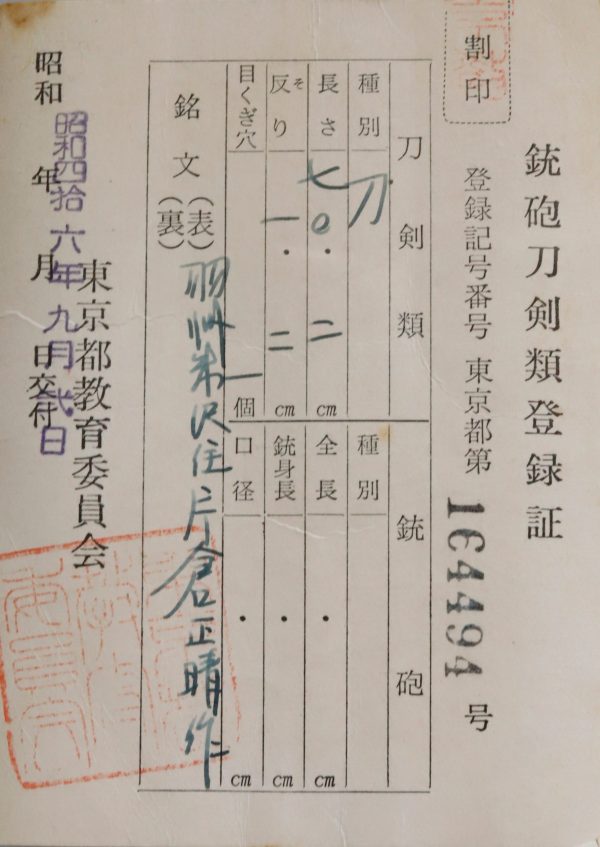 割印
銃砲刀剣類登録証
登録記号番号 東京都第 164494 号
刀剣類
種別 刀
長さ 七〇・二 cm
反り 一・二 cm
そ
目くぎ穴 一 個
銃砲
種別
全長 ・ cm
銃身長 ・ cm
口径 ・ cm
銘文 (表)
(裏)
羽州米沢住片倉正晴作
昭和 年 月 日交付
昭和四拾六年九月弐日
東京都教育委員会